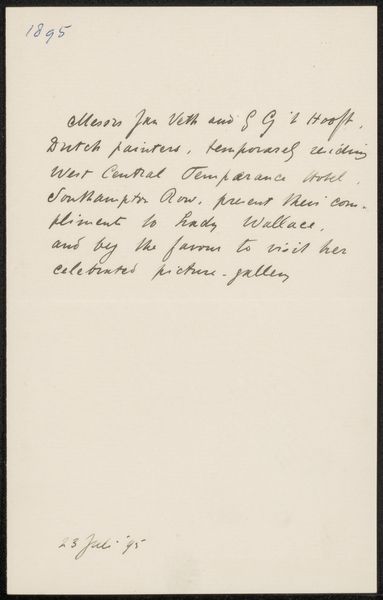 1895
Messrs Jan Veth and G Cj 't Hooft,
Dutch painters, temporarely residing
West Central Temperance Hotel,
Southampton Row, present their com-
pliment to Lady Wallace,
and beg the favour to visit her
celebrated picture-gallery
23 Juli '95